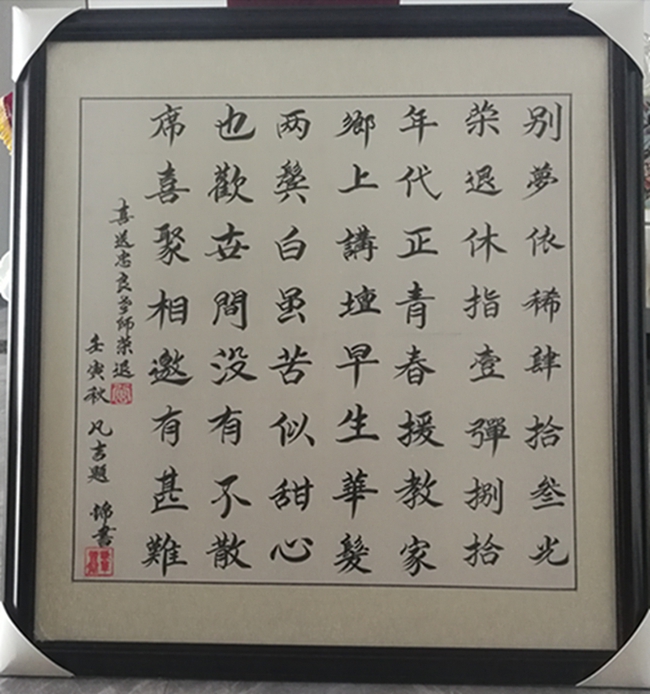 别夢依稀肆拾叁光
荣退休指壹彈捌拾
年代正青春援教家
鄉上講壇早生華髮
两鬓白虽苦似甜心
也歡世間没有不散
席喜聚相邀有甚難
喜送忠良学师荣退
壬寅秋 凡言题 锦书